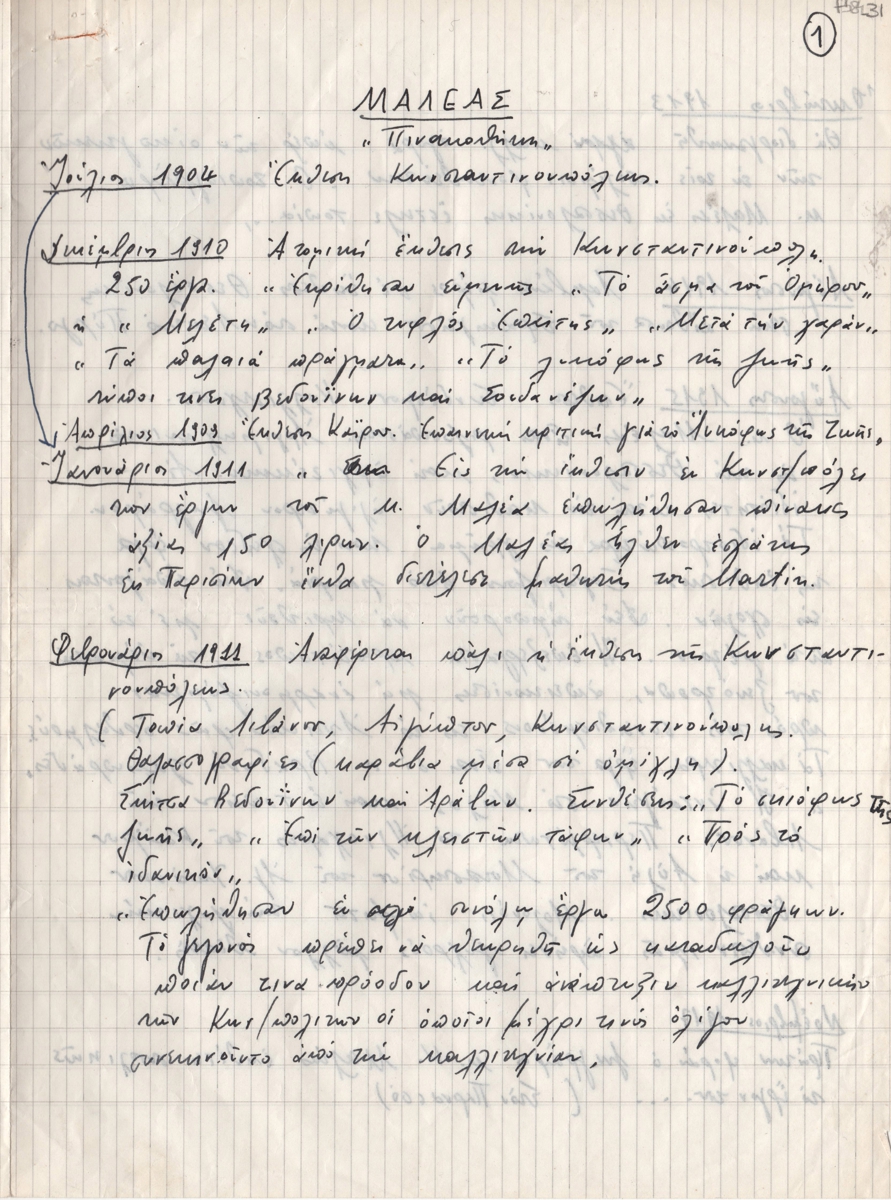 1
ΜΑΛΕΑΣ
„Πινακοθήκη„
Ἰούλιος 1904 Ἔκθεσις Κωνσταντινουπόλεως.
Δεκέμβριος 1910 Ἀτομική ἔκθεσις στήν Κωνσταντινούπολη.
250 ἔργα. „Ἐκρίθησαν εὐμενῶς „Τό ᾆσμα τοῦ Ὁμήρου„
ἡ „Μελέτη„ „Ὁ τυφλός ἐπαίτης„ „Μετά τήν χαράν„
„Τά παλαιά πράγματα„ „Τό λυκόφως τῆς ζωῆς„
τύποι τινες βεδουΐνων καί Σουδανέζων„
Ἀπρίλιος 1909 Ἔκθεση Καΐρου. Ἐπαινετική κριτική γιά τό Λυκόφως τῆς Ζωῆς„
Ἰανουάριος 1911 „ Εἰς τήν ἔκθεσιν ἐν Κωνστ/πόλει
των ἔργων τοῦ κ. Μαλέα ἐπωλήθησαν πίνακες
ἀξίας 150 λιρῶν. Ὁ Μαλέας ἦλθεν ἐσχάτως
ἐκ Παρισίων ἔνθα διετέλεσε μαθητής τοῦ Martin.
Φεβρουάριος 1911 Ἀναφέρεται πάλι ἡ ἔκθεση τῆς Κωνσταντι-
νουπόλεως.
( Τοπία Λιβάνου, Αἰγύπτου, Κωνσταντινούπολης.
Θαλασσογραφίες (καράβια μέσα σέ ὁμίχλη).
Σκίτσα Βεδουΐνων καί Ἀράβων. Συνθέσεις: „Τό σκιόφως τῆς
ζωῆς„ „Ἐπί τῶν κλειστῶν τάφων„ „Πρός τό
ἰδανικόν„
„Ἐπωλήθησαν ἐν συνόλῳ ἔργα 2500 φράγκων.
Τό γεγονός πρέπει νά θεωρηθῇ ὡς καταδηλοῦν
ποιάν τινα πρόοδον καί ἀνάπτυξιν καλλιτεχνικήν
τῶν Κων/πολιτῶν οἱ ὁποῖοι μέχρι τινός ὀλίγον
συνεκινοῦντο ἀπό τήν καλλιτεχνίαν„